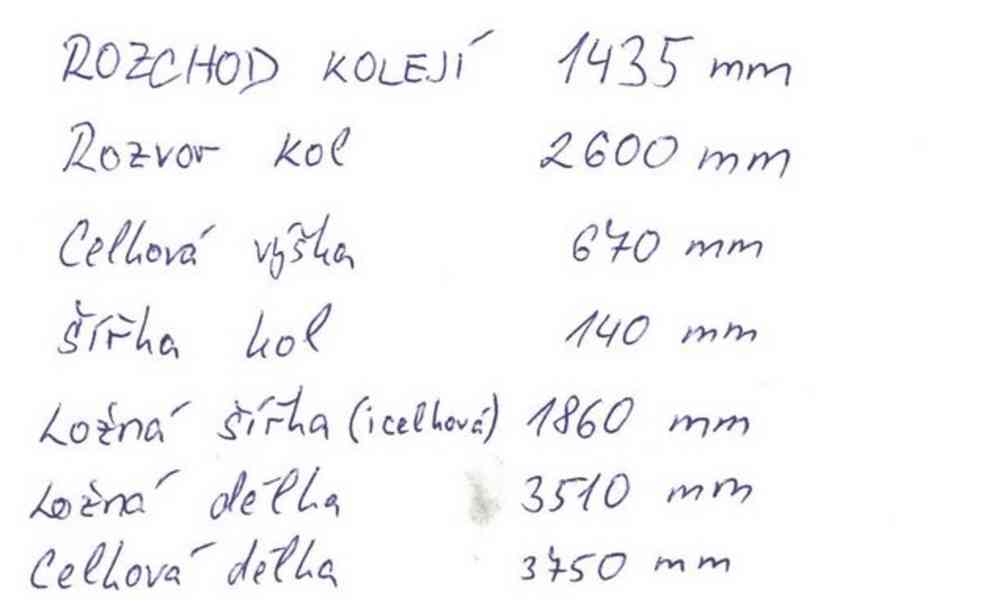 ROZCHOD KOLEJÍ 1435 mm
Rozvor kol 2600 mm
Celková výška 670 mm
Šířka kol 140 mm
Ložná šířka (i celková) 1860 mm
Ložná délka 3510 mm
Celková délka 3750 mm